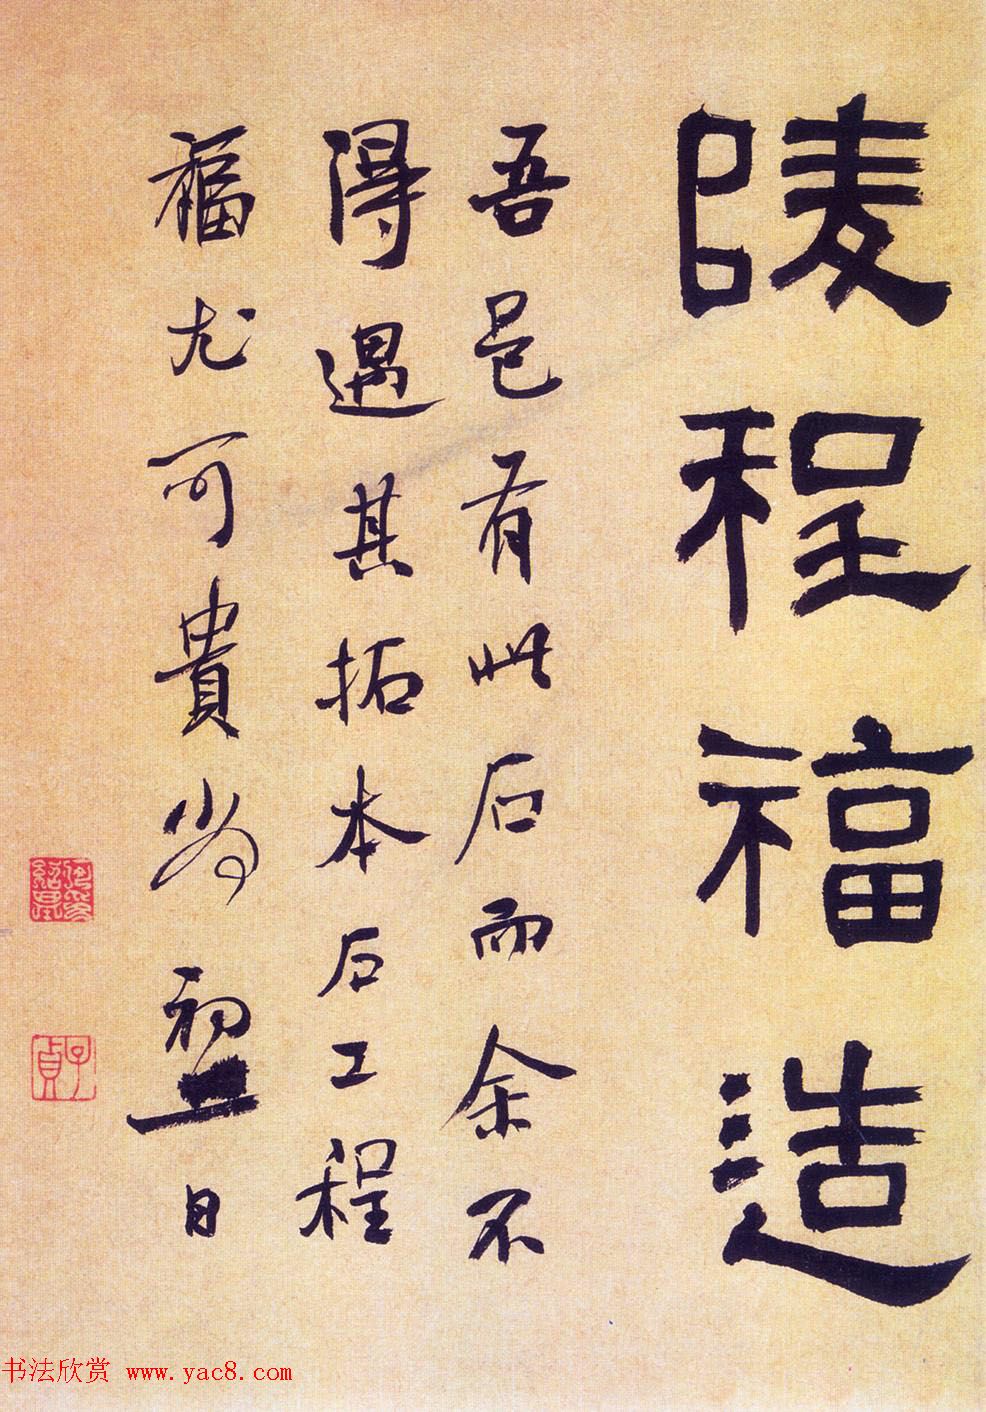 陵程福造
吾邑有此石而余不
得遇其拓本石工程
福尤可貴尚初日
子貞
书法欣赏 www.yac8.com